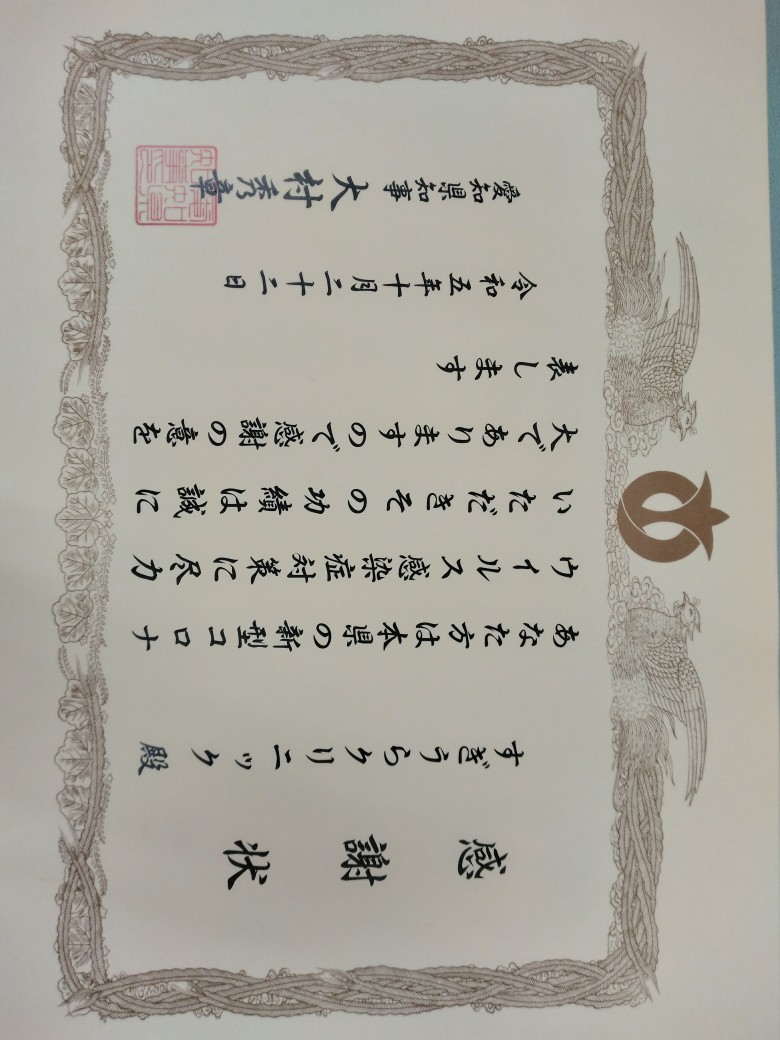 感謝状
すぎうらクリニック 殿
あなた方は本県の新型コロナ
ウイルス感染症対策に尽力
いただきその功績は誠に
大でありますので感謝の意を
表します
令和五年十月二十二日
愛知県知事 大村秀章